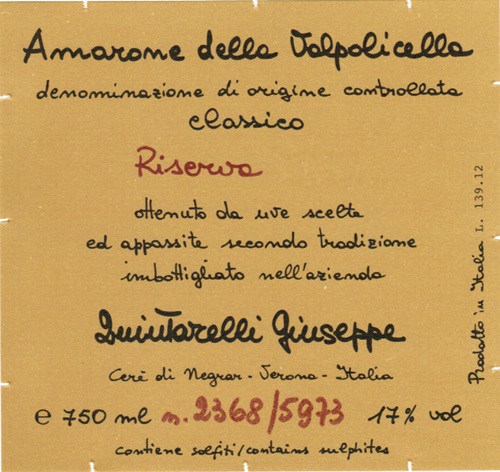 Amarone della Valpolicella
denominazione di origine controllata
classico
Riserva
ottenuto da uve scelte
ed appassite secondo tradizione
imbottigliato nell'azienda
Quintarelli Giuseppe
Cerè di Negrar - Verona - Italia
e 750 ml n. 2368/5973 17% vol
contiene solfiti/contains sulphites
Prodotto in Italia L. 139.12